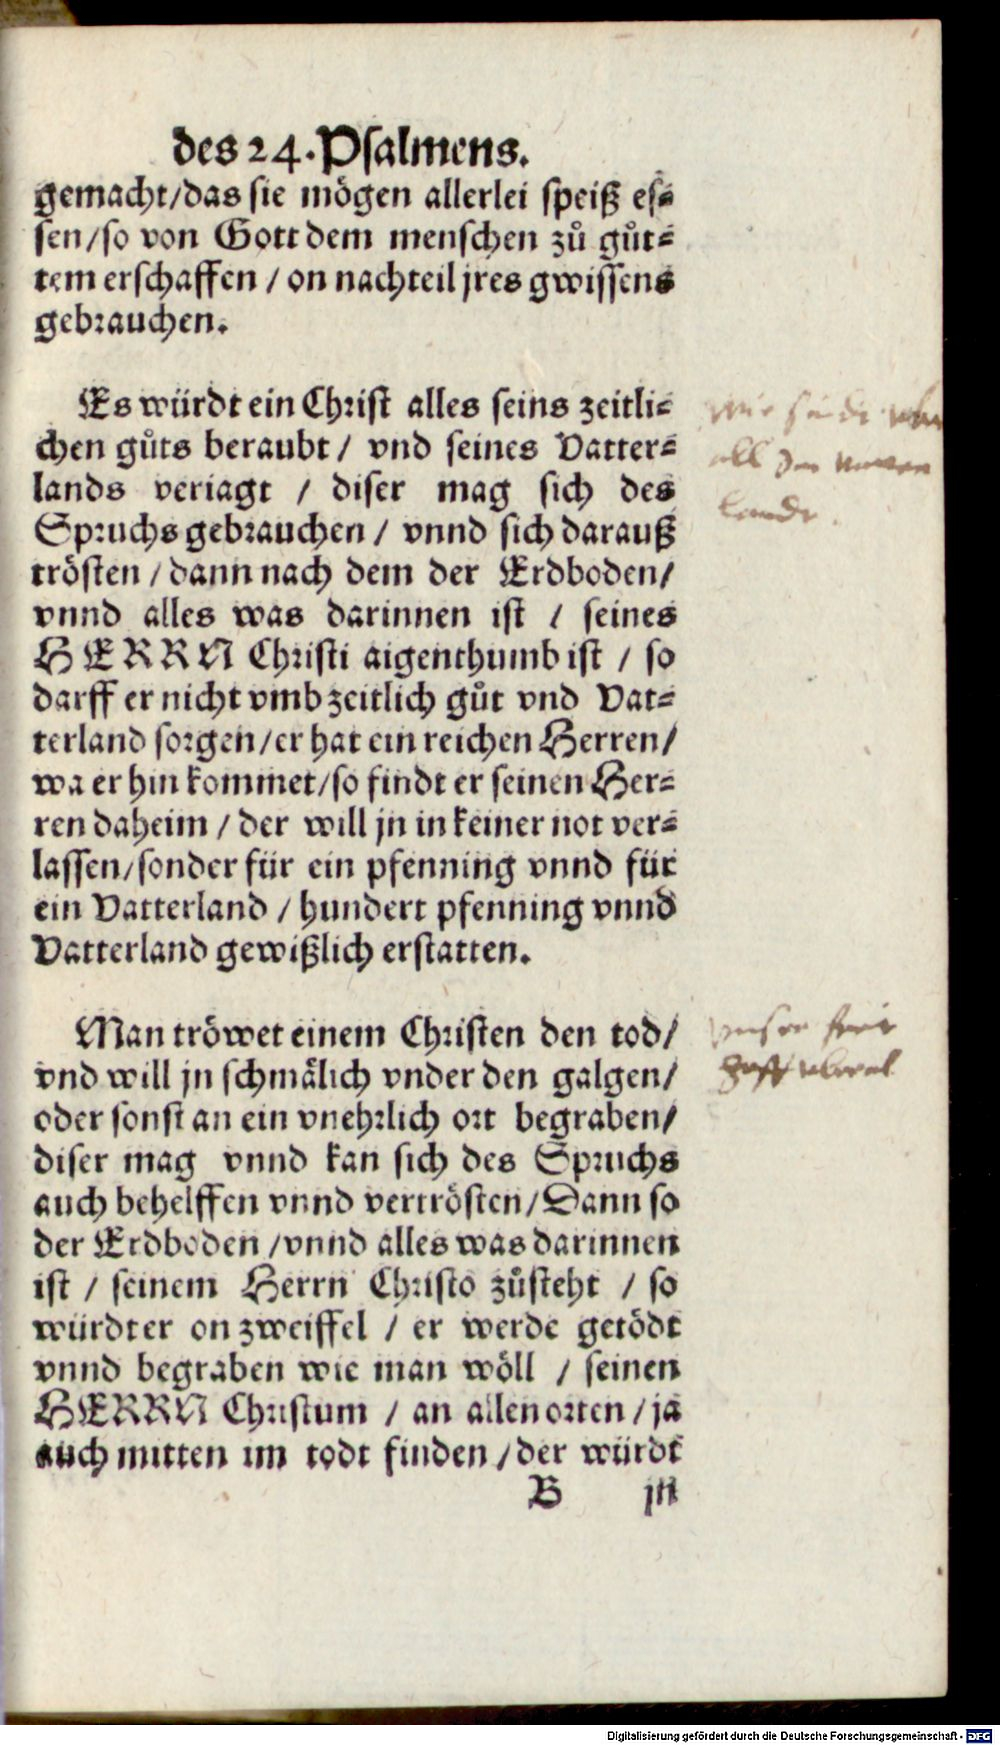 des 24. Psalmens.
gemacht/das sie mögen allerlei speiß es⸗
sen/so von Gott dem menschen zů gůt⸗
tem erschaffen / on nachteil jres gwissens
gebrauchen.
Es würdt ein Christ alles seins zeitli⸗
chen gůts beraubt / vnd seines Vatter⸗
lands veriagt / diser mag sich des
Spruchs gebrauchen / vnnd sich darauß
trösten / dann nach dem der Erdboden/
vnnd alles was darinnen ist / seines
HERRN Christi aigenthumb ist / so
darff er nicht vmb zeitlich gůt vnd Vat⸗
terland sorgen/er hat ein reichen Herren/
wa er hin kommet/so findt er seinen Her⸗
ren daheim / der will jn in keiner not ver⸗
lassen/sonder für ein pfenning vnnd für
ein Vatterland / hundert pfenning vnnd
Vatterland gewißlich erstatten.
Man tröwet einem Christen den tod/
vnd will jn schmälich vnder den galgen/
oder sonst an ein vnehrlich ort begraben/
diser mag vnnd kan sich des Spruchs
auch behelffen vnnd vertrösten/Dann so
der Erdboden /vnnd alles was darinnen
ist / seinem Herrn Christo zůsteht / so
würdt er on zweiffel / er werde getödt
vnnd begraben wie man wöll / seinen
HERRN Christum / an allen orten / ja
auch mitten im todt finden /der würdt
B jm
Digitalisierung gefördert durch die Deutsche Forschungsgemeinschaft - DFG